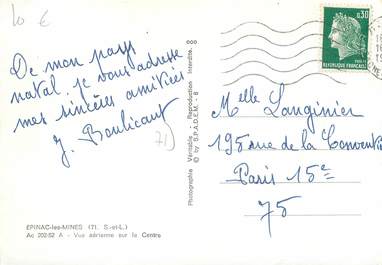 10 €
De mon pays
natal, je vous adresse
mes sincères amitiés
J. Boulicaut
71)
EPINAC-les-MINES (71. S.-et-L.)
Ac 202-52 A - Vue aérienne sur le Centre
Photographie Véritable - Reproduction Interdite.
© by S.P.A.D.E.M. - 6
0,30
REPUBLIQUE FRANÇAISE
Melle Langinier
195 rue de la Convention
Paris 15e
75